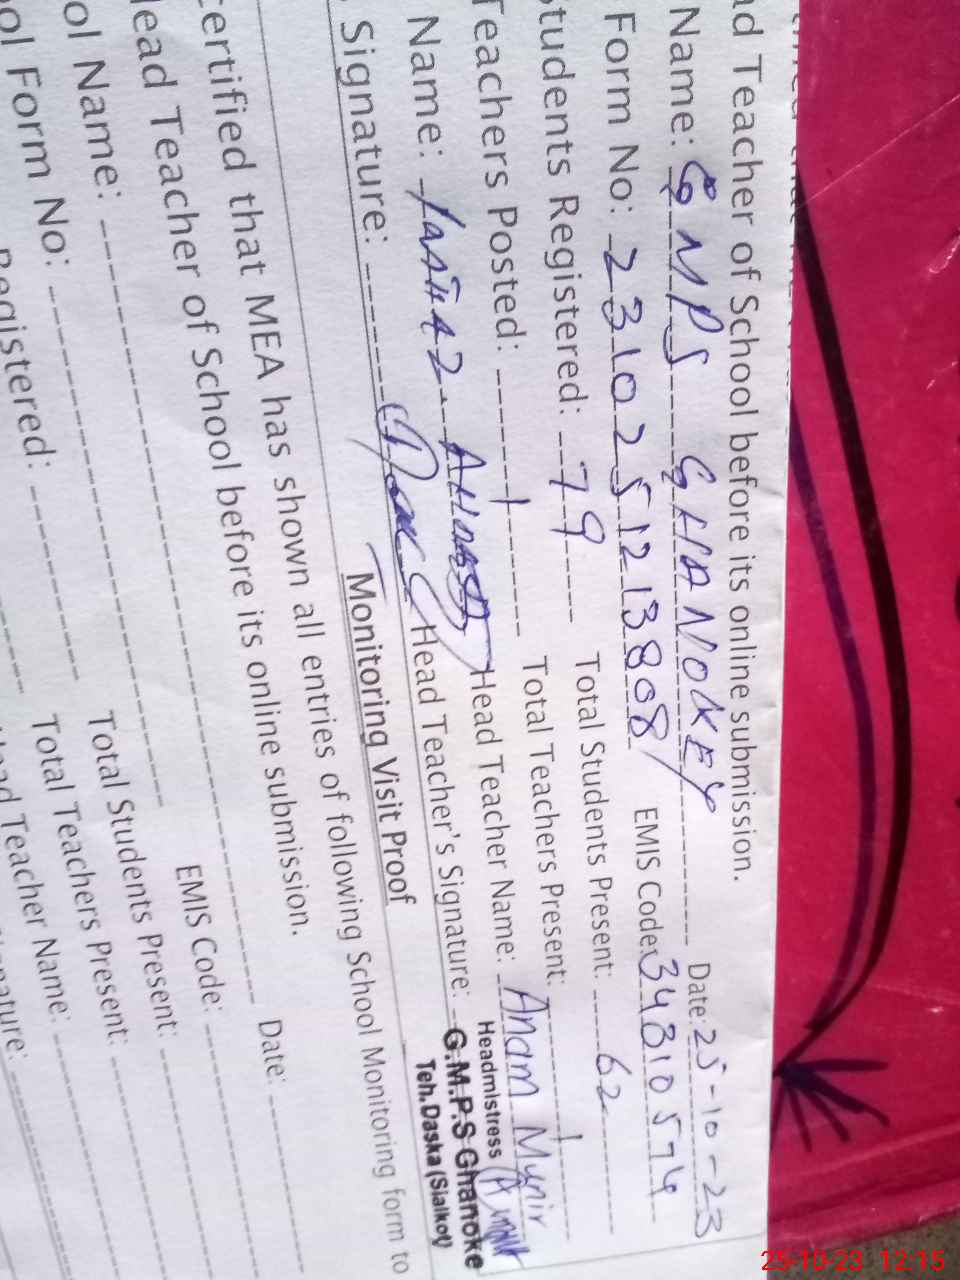 ad Teacher of School before its online submission.
Name: GMPS GHANOKEY Date: 25-10-23
Form No: 2310251213808 EMIS Code: 34310574
Students Registered: 79 Total Students Present: 62
Teachers Posted: 1 Total Teachers Present: 1
Name: Head Teacher Name: Anam Munir
Signature: Head Teacher's Signature:
Headmistress
G.M.P.S Ghanoke
Teh.Daska (Sialkot)
Monitoring Visit Proof
Certified that MEA has shown all entries of following School Monitoring form to
Head Teacher of School before its online submission.
ol Name: Date:
ol Form No: EMIS Code:
Registered: Total Students Present:
Total Teachers Present:
Head Teacher Name:
nature:
25-10-23 12:15